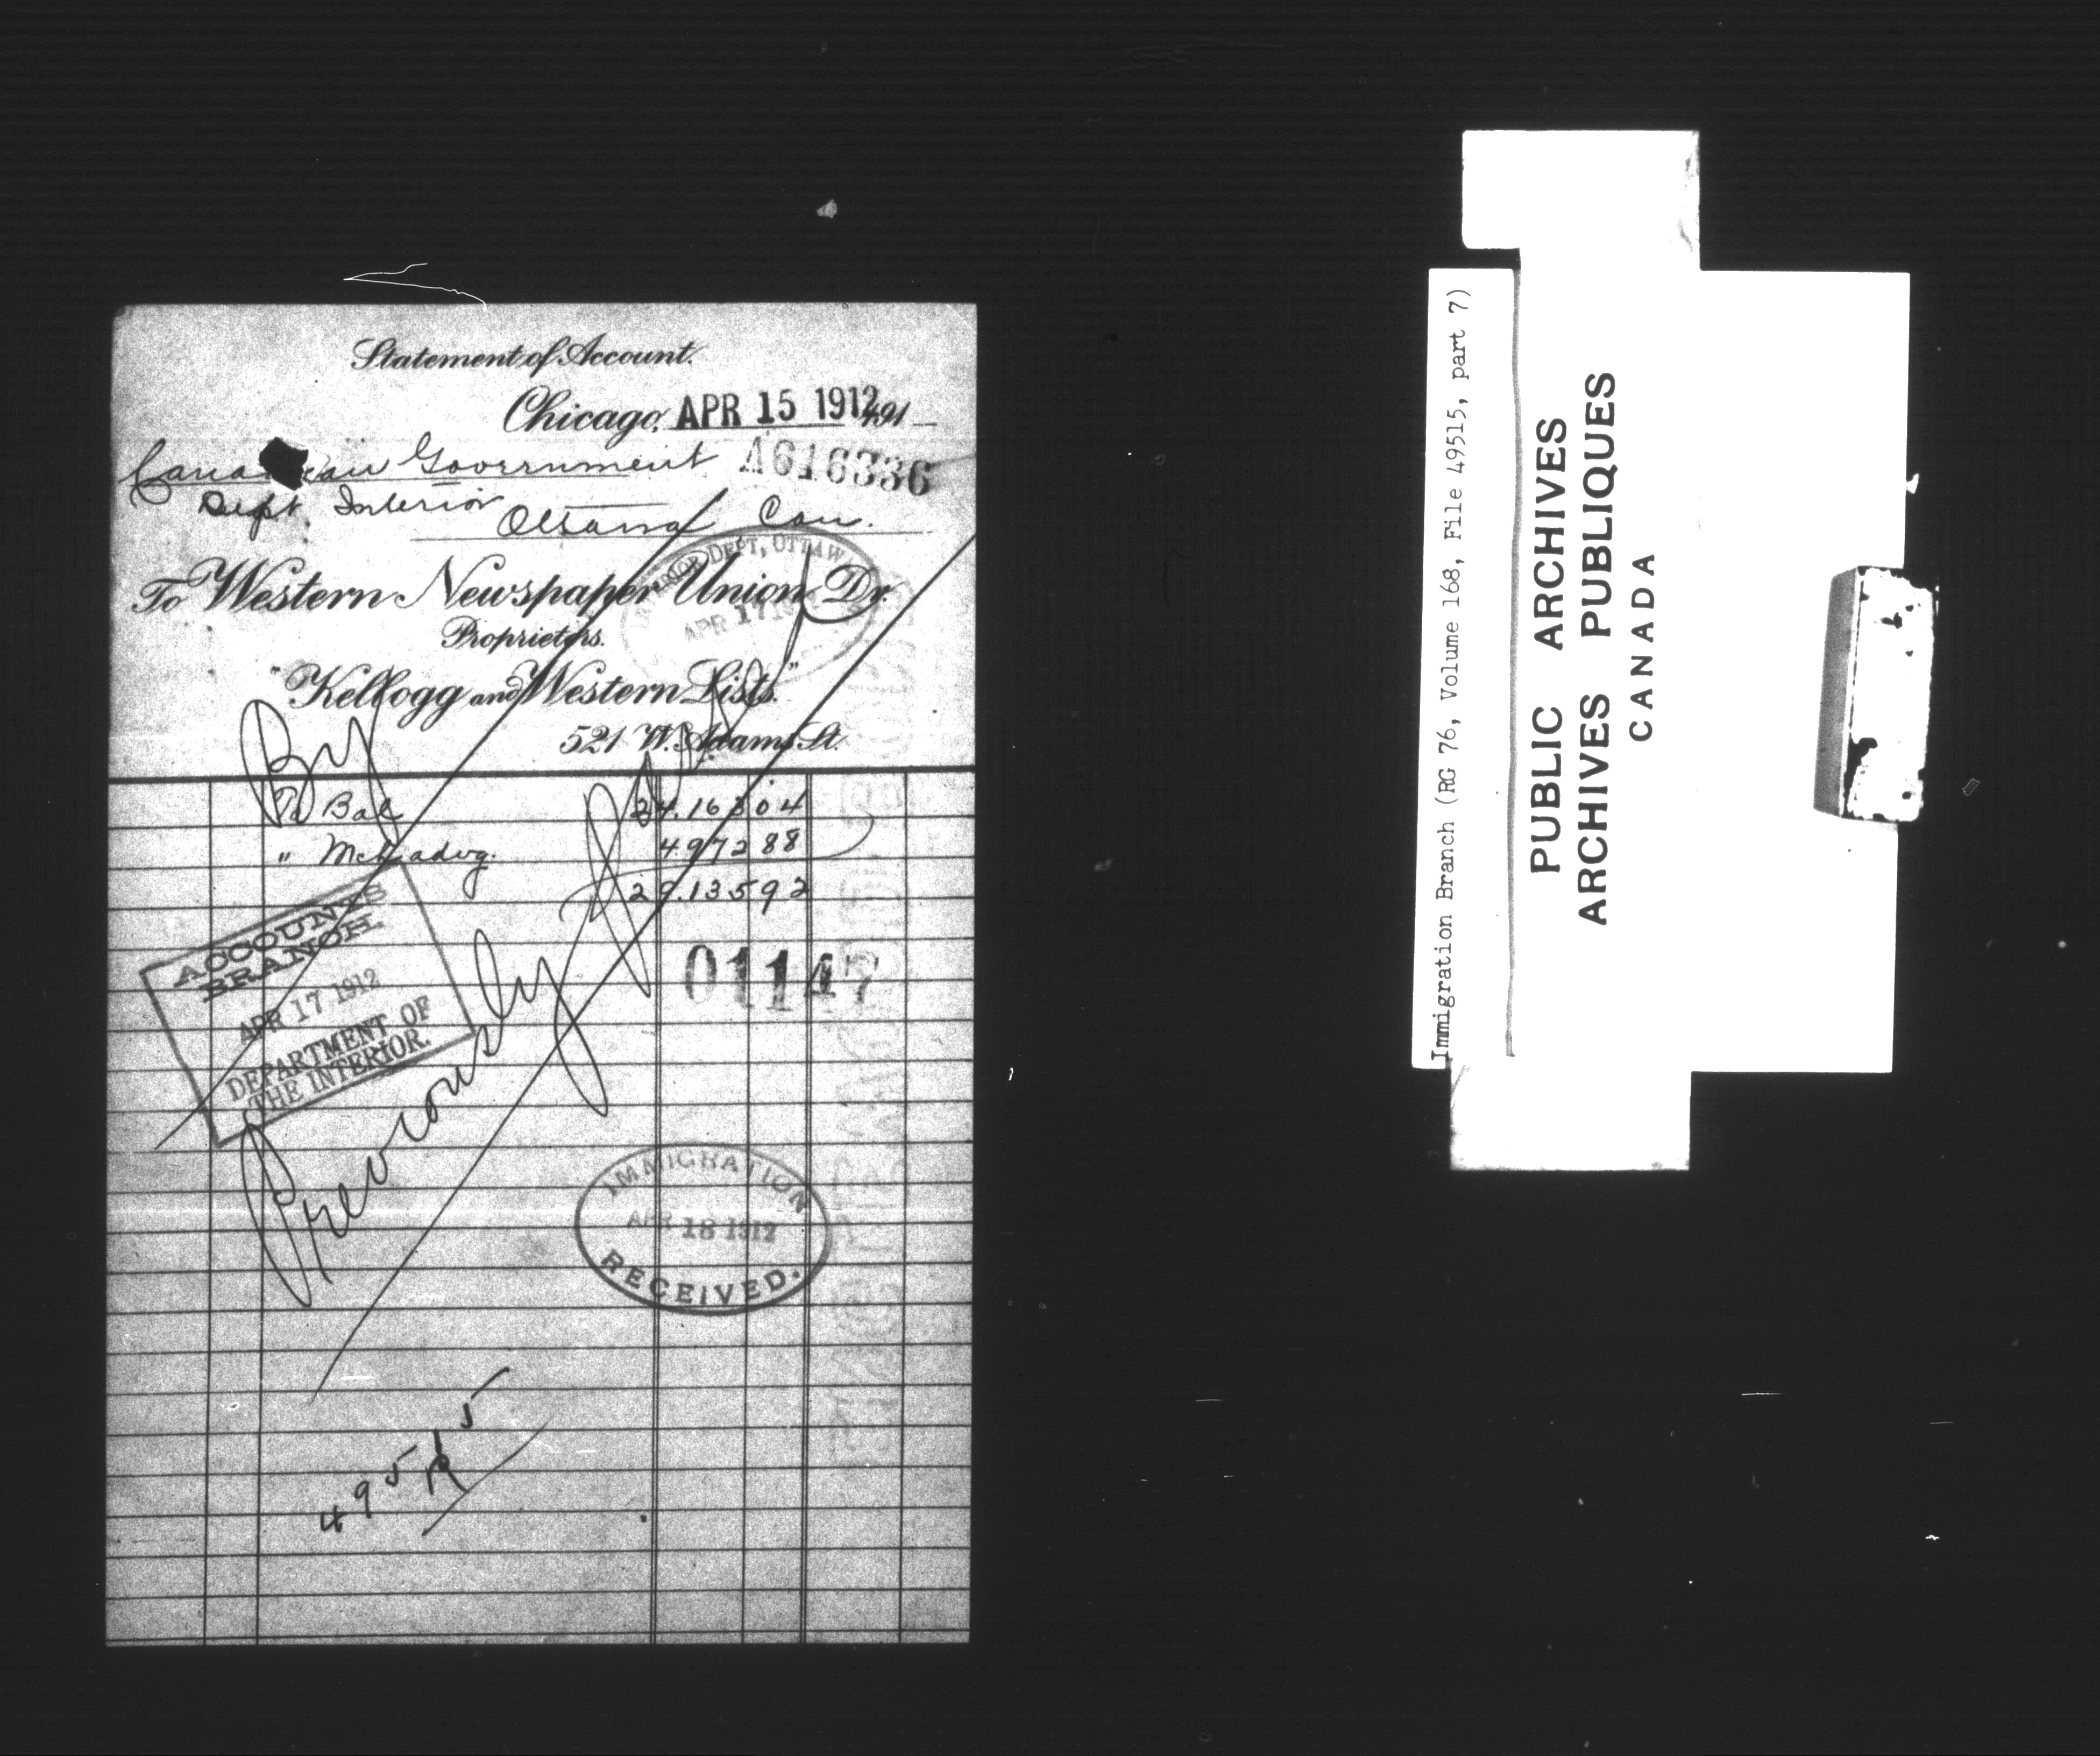 Statement of Account.
Chicago, APR 15 1912 191_
Canadian Government A616336
Dept. Interior Ottawa Can.
INTERIOR DEPT, OTTAWA
APR 17
To Western Newspaper Union Dr.
Proprietors.
"Kellogg and Western Lists."
521 W. Adams St.
By
To Bal 24.163 04
" Mch advg. 4.972 88
29.135 92
ACCOUNTS
BRANCH.
APR 17 1912
DEPARTMENT OF
THE INTERIOR.
01147
Previously
IMMIGRATION
APR 18 1912
RECEIVED.
49515
Immigration Branch (RG 76, Volume 168, File 49515, part 7)
PUBLIC ARCHIVES
ARCHIVES PUBLIQUES
CANADA